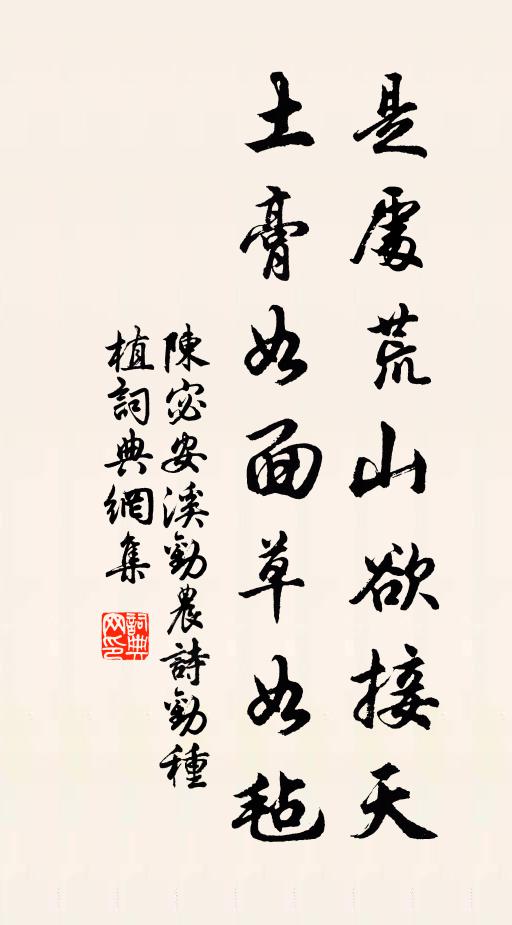 是處荒山欲接天
土膏如面草如毡
陳宓安溪勸農詩勸種
植詞典網集
詞典
网印